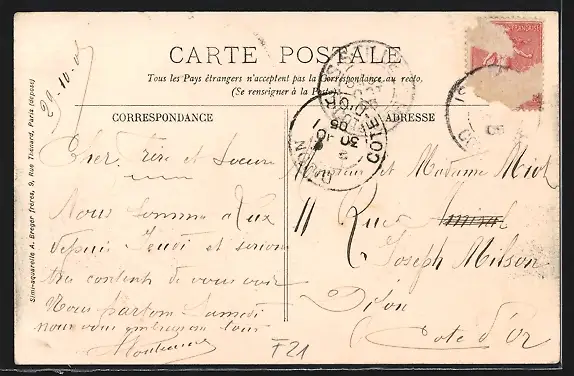 CARTE POSTALE
Tous les Pays étrangers n'acceptent pas la Correspondance au recto.
(Se renseigner à la Poste)
CORRESPONDANCE
ADRESSE
30-10-05
Simili-aquarelle A. Breger frères, 9, Rue Thénard, Paris (déposé)
Cher frère et Soeur
Nous sommes à
depuis Jeudi et serions
très contents de vous voir
Nous partons Samedi
nous vous embrassons tous
Monsieur et Madame Miot
11 Rue
Joseph Milson
Dijon
Cote d'Or
DIJON
COTE D'OR
30 -10
05
F21